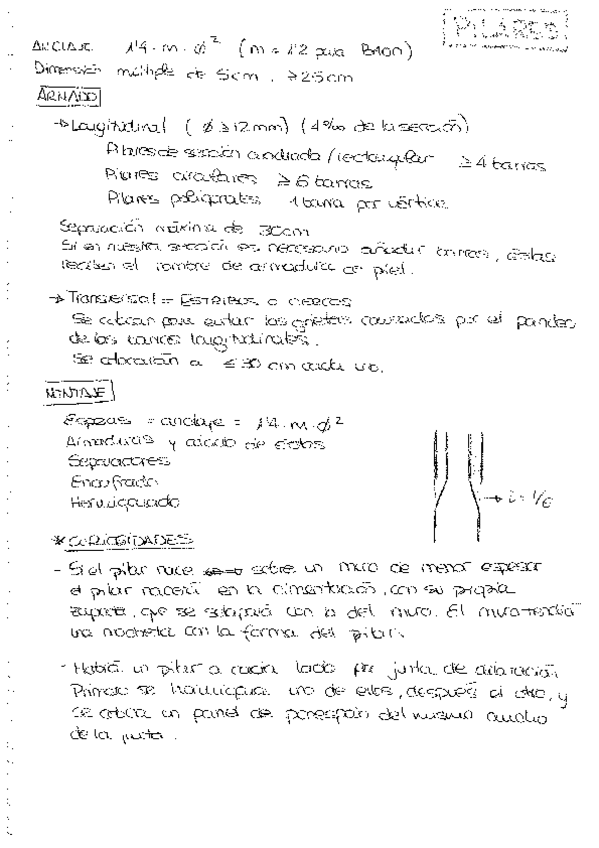 PILARES
ANCLAJE 1'4 · m · ø² (m = 1'2 para B400)
Dimensión múltiplo de 5cm, ≥25cm
ARMADO
→ Longitudinal (ø ≥12mm) (4‰ de la sección)
Pilares de sección cuadrada/rectangular ≥4 barras
Pilares circulares ≥6 barras
Pilares poligonales 1 barra por vértice
Separación máxima de 30cm
Si en nuestra sección es necesario añadir barras, éstas
reciben el nombre de armadura de piel.
→ Transversal = ESTRIBOS o CERCOS
Se colocan para evitar las grietas causadas por el pandeo
de las barras longitudinales.
Se colocarán a ≤30 cm cada uno.
MONTAJE
Esperas = anclaje = 1'4 · m · ø²
Armaduras y atado de éstas
Separadores
Encofrado
Hormigonado
→ i = 1/6
* CURIOSIDADES
- Si el pilar nace sobre un muro de menor espesor
el pilar nacerá en la cimentación, con su propia
zapata, que se solapará con la del muro. El muro tendrá
una mocheta con la forma del pilar.
- Habrá un pilar a cada lado por junta de dilatación.
Primero se hormigona uno de ellos, después el otro, y
se coloca un panel de porexpan del mismo ancho
de la junta.